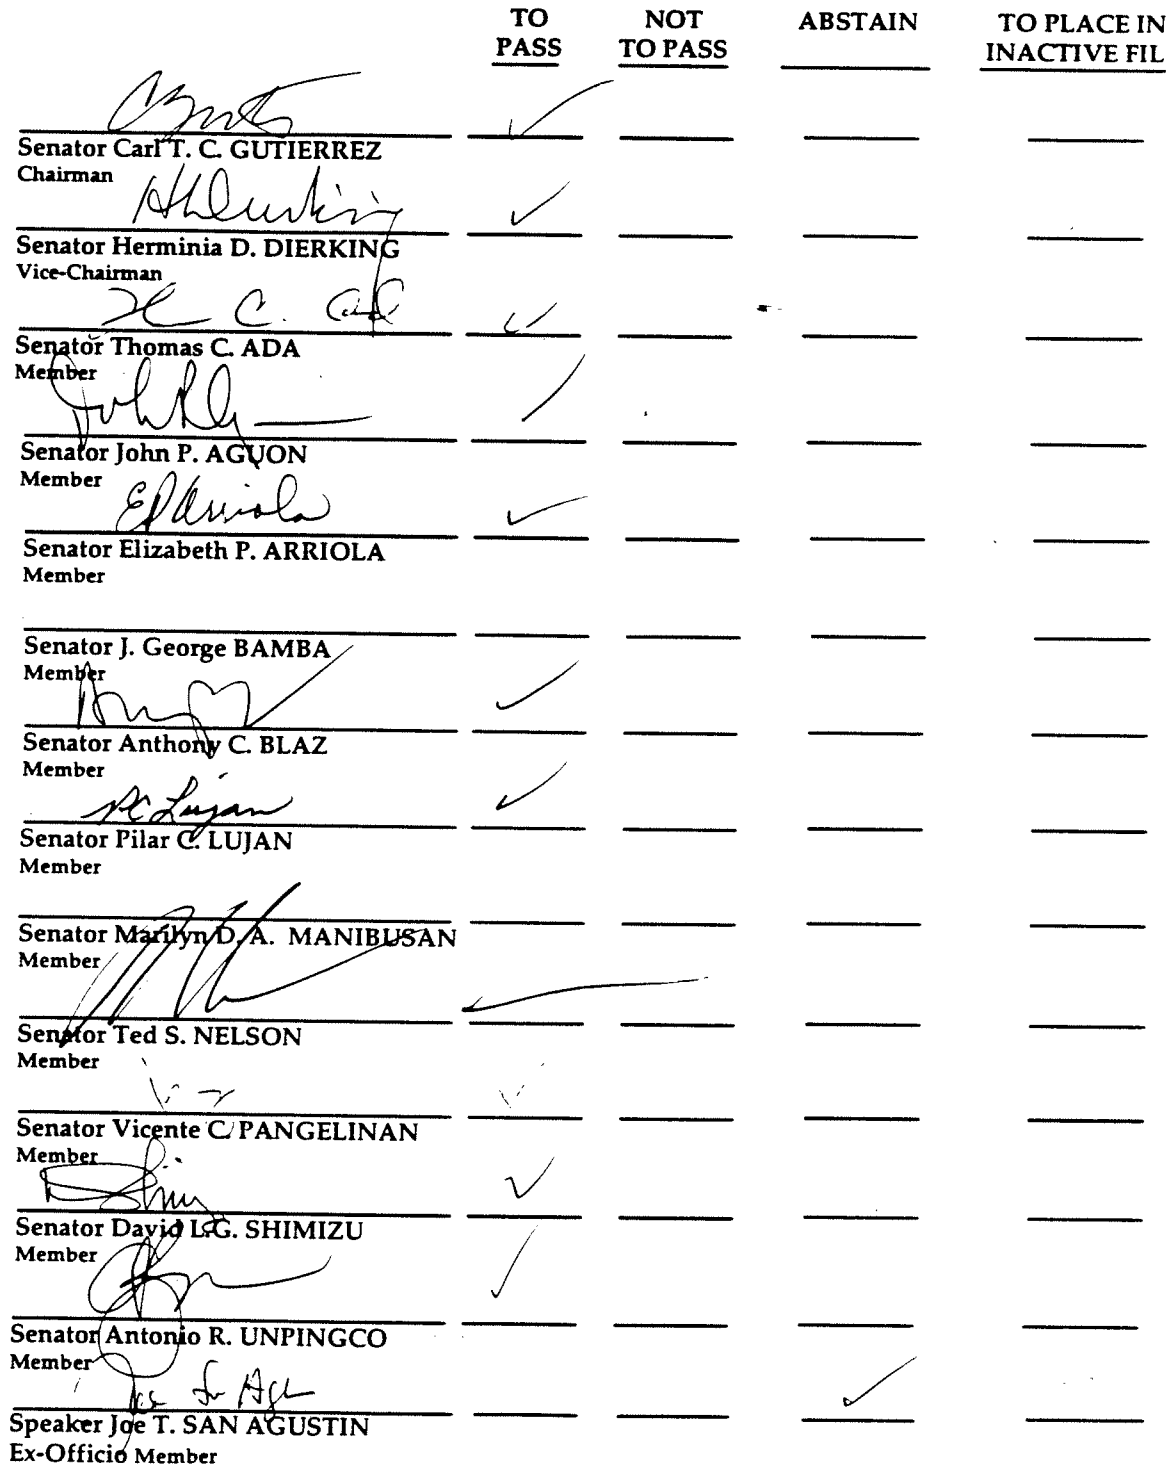 TO NOT ABSTAIN TO PLACE IN
PASS TO PASS INACTIVE FIL
Senator Carl T. C. GUTIERREZ
Chairman
Senator Herminia D. DIERKING
Vice-Chairman
Senator Thomas C. ADA
Member
Senator John P. AGUON
Member
EPArriola
Senator Elizabeth P. ARRIOLA
Member
Senator J. George BAMBA
Member
Senator Anthony C. BLAZ
Member
PC Lujan
Senator Pilar C. LUJAN
Member
Senator Marilyn D. A. MANIBUSAN
Member
Senator Ted S. NELSON
Member
Senator Vicente C. PANGELINAN
Member
Senator David L.G. SHIMIZU
Member
Senator Antonio R. UNPINGCO
Member
Speaker Joe T. SAN AGUSTIN
Ex-Officio Member